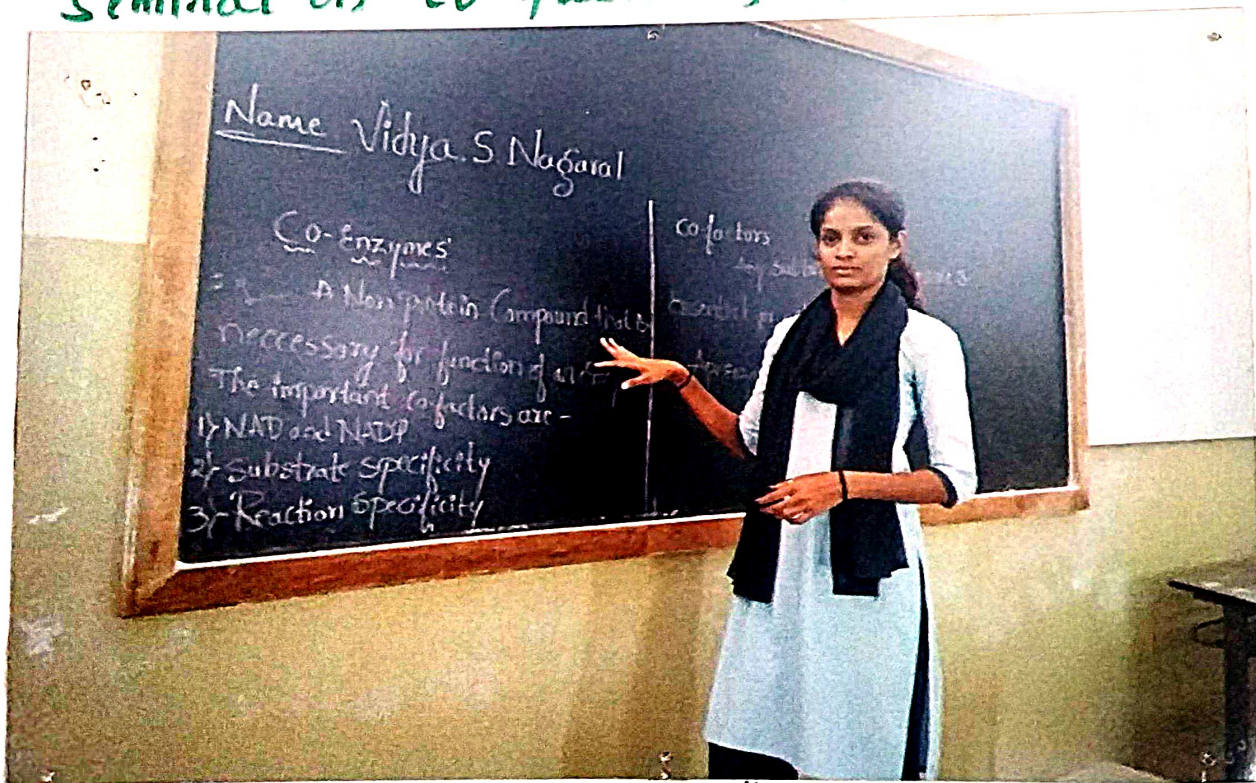 Seminar on Co
Name Vidya. S. Nagaral
Co-Enzymes
A Non protein Compound that is
neccessary for function of an
The important Co-factors are -
1) NAD and NADP
2) Substrate specificity
3) Reaction Specificity
Co-factors
Any
essential